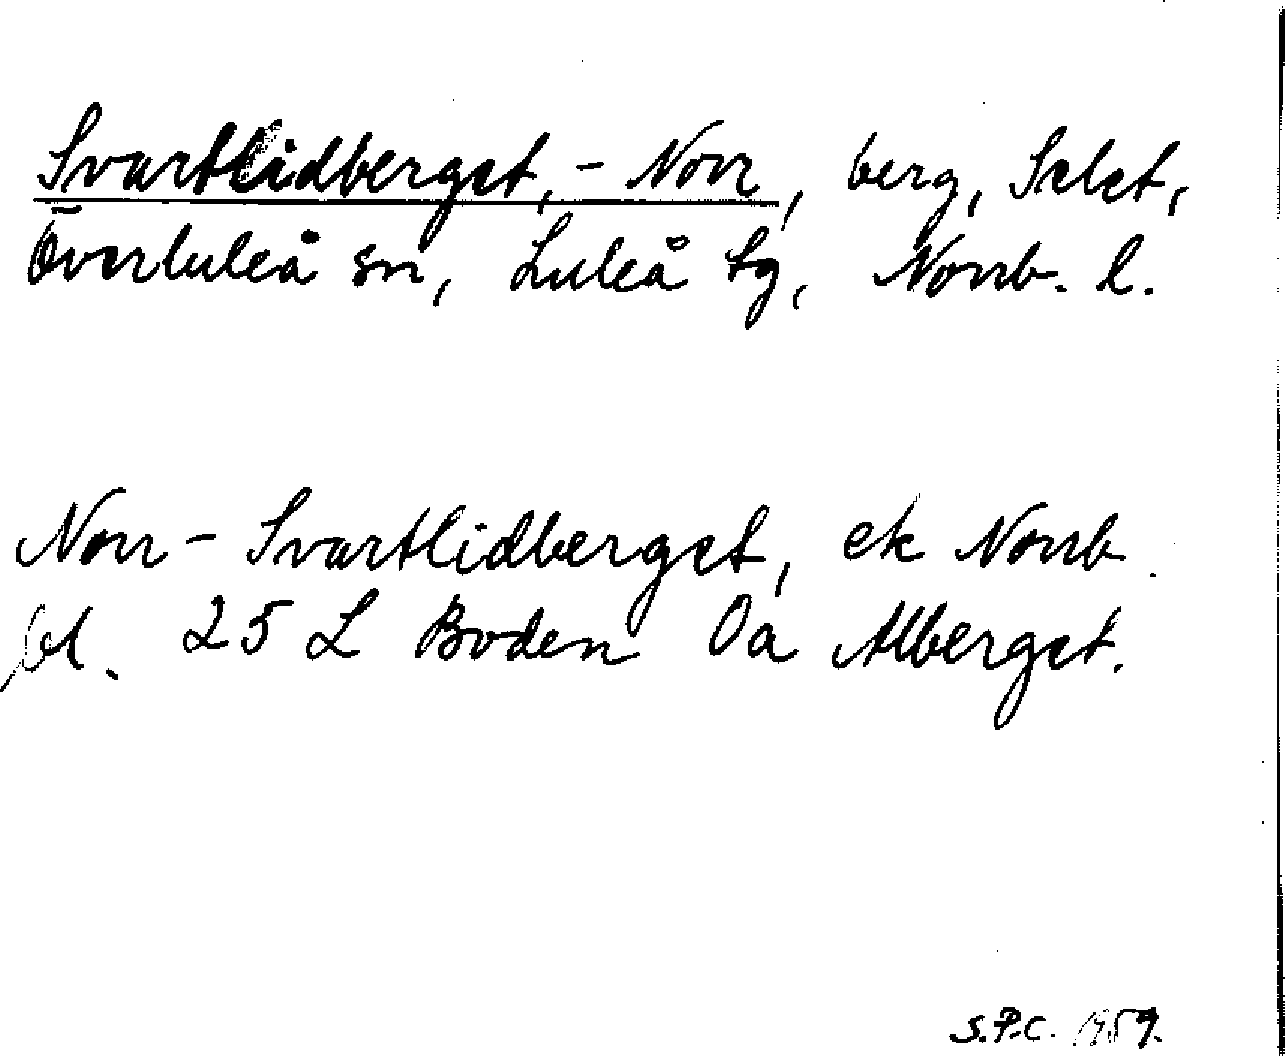 Svartlidberget, - Norr, berg, Selet,
Överluleå sn, Luleå tg, Norrb. l.
Norr - Svartlidberget, ek Norrb.
bl. 25 L Boden 0a Alberget.
S.P.C. 1959.